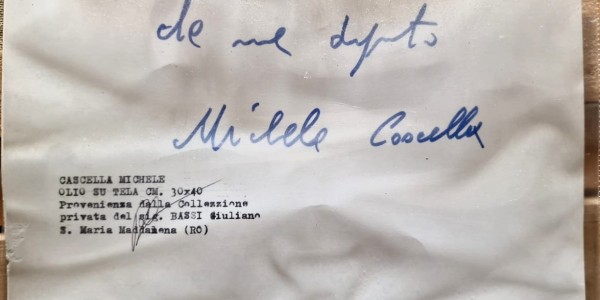 da me dipinto
Michele Cascella
CASCELLA MICHELE
OLIO SU TELA CM. 30x40
Provenienza dalla Collezzione
privata del sig. BASSI Giuliano
S. Maria Maddalena (RO)